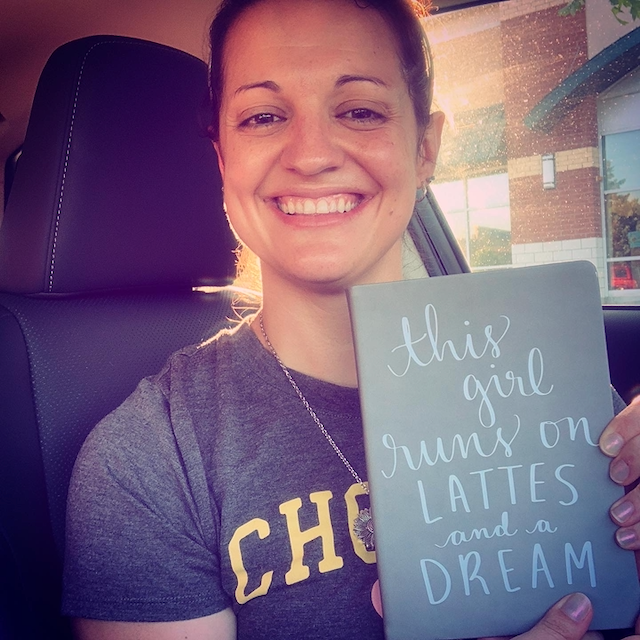 this
girl
runs on
LATTES
and a
DREAM
CHO